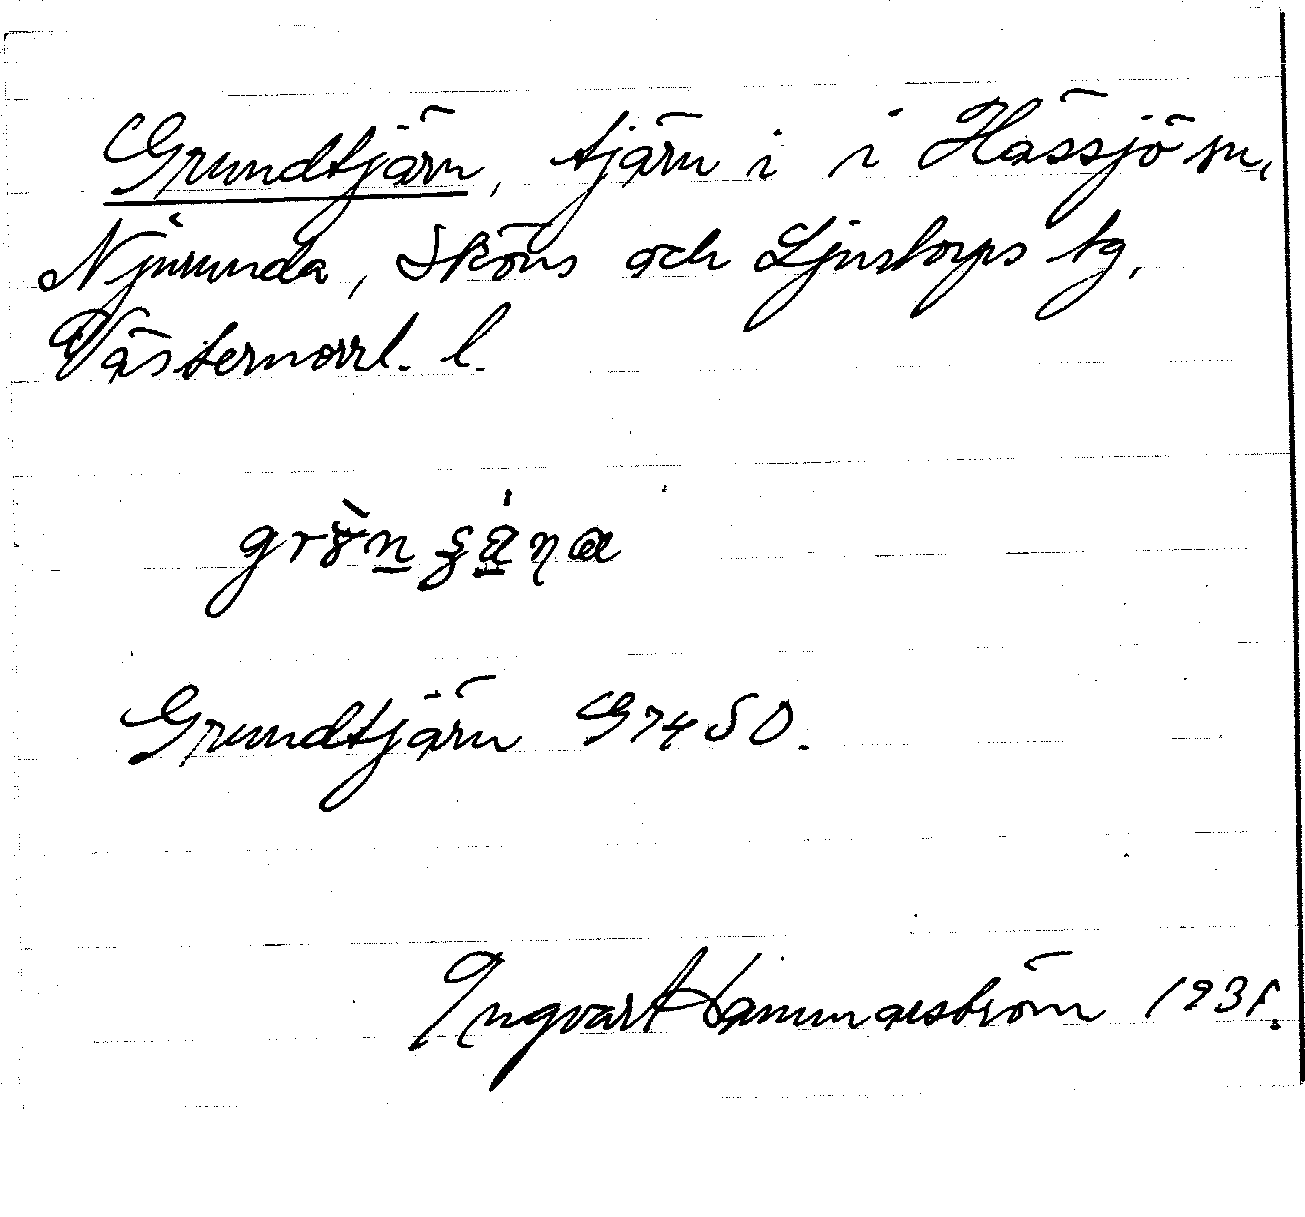 Grundtjärn, tjärn i i Hässjö sn,
Njurunda, Sköns och Ljustorps tg,
Västernorrl. l.
Grundtjärn G74SO.
Ingvart Hammarström 1931.